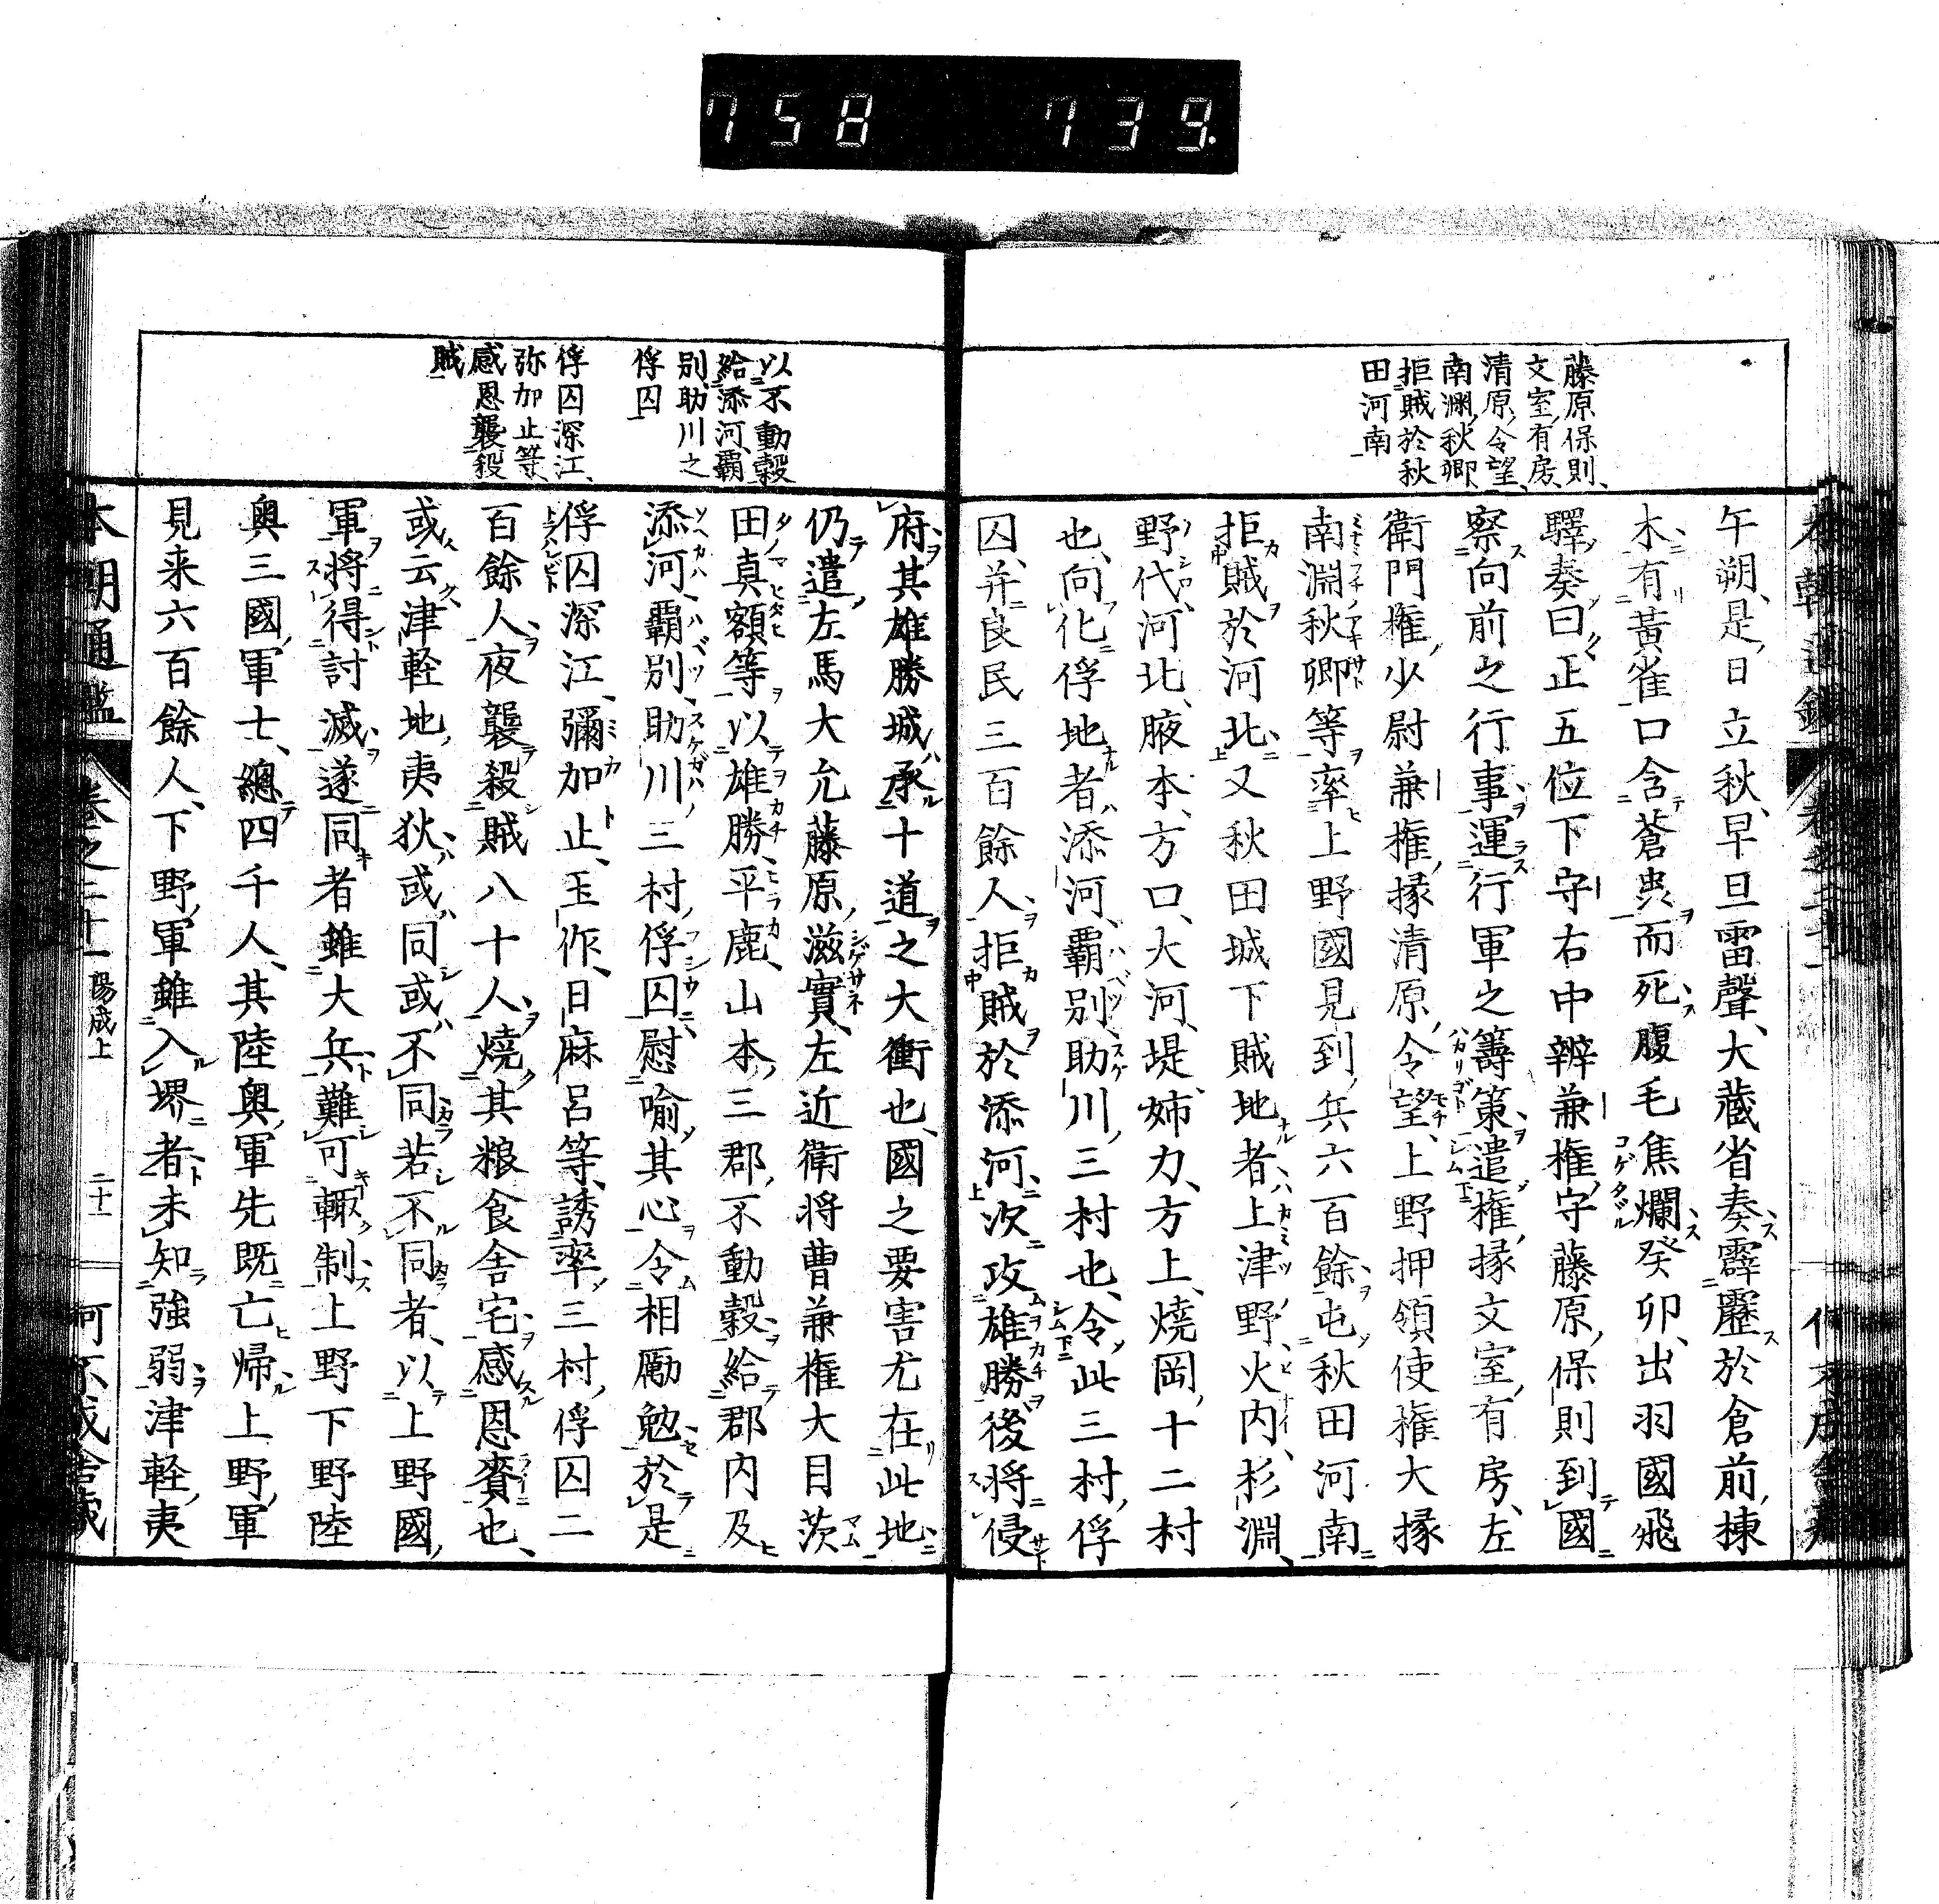 758 739.
藤原保則、
文室有房、
清原令望、
南淵秋郷、
拒賊於秋
田河南
午朔、是日立秋、早旦雷聲、大藏省奏霹靂於倉前棟
木有黃雀口含蒼虫而死腹毛焦爛癸卯、出羽國飛
驛奏曰正五位下守右中辨兼権守藤原保則到國
察向前之行事運行軍之籌策遣権掾文室有房、左
衛門権少尉兼権掾清原令望、上野押領使権大掾
南淵秋郷等率上野國見到兵六百餘屯秋田河南
拒賊於河北又秋田城下賊地者上津野、火内、杉淵、
野代河北、腋本、方口、大河、堤、姉力、方上、燒岡十二村
也、向化俘地者添河、覇別、助川三村也、令此三村俘
囚、并良民三百餘人拒賊於添河次攻雄勝後将侵
以不動穀
給添河、覇
別、助川之
俘囚
俘囚深江
弥加止等、
感恩襲殺
賊
府其雄勝城承十道之大衝也、國之要害尤在此地
仍遣左馬大允藤原滋實、左近衛将曹兼権大目茨
田真額等以雄勝、平鹿、山本三郡不動穀給郡内及
添河覇別、助川三村俘囚慰喻其心令相勵勉於是
俘囚深江、彌加止、玉作、日麻呂等、誘率三村俘囚二
百餘人夜襲殺賊八十人燒其粮食舎宅感恩賚也、
或云津軽地夷狄或同或不同若不同者、以上野國
軍将得討滅遂同者雖大兵難可輙制上野下野陸
奥三國軍士、總四千人、其陸奥軍先既亡歸上野軍
見来六百餘人、下野軍雖入堺者未知強弱津軽夷
本朝通鑑 卷之二十一 陽成上 二十一